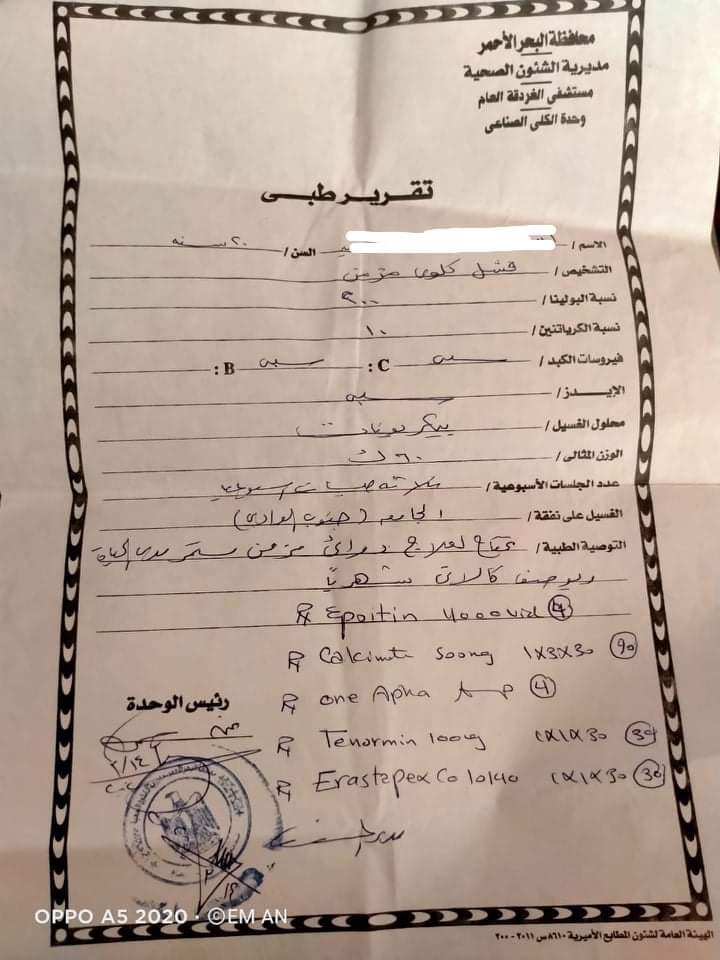 محافظة البحر الأحمر
مديرية الشئون الصحية
مستشفى الغردقة العام
وحدة الكلى الصناعى
تقرير طبى
الاسم / السن / ٢٠ سنه
التشخيص / فشل كلوى مزمن
نسبة البولينا / ٢٠٠
نسبة الكرياتنين / ١٠
فيروسات الكبد / سلبى C: سلبى B:
الإيدز / سلبى
محلول الغسيل / بيكربونات
الوزن المثالى / ٦٠ ك
عدد الجلسات الأسبوعية / ثلاثه جلسات اسبوعيا
الغسيل على نفقة / الجامعه (جنوب الوادى)
التوصية الطبية / يحتاج لعلاج دوائى مزمن مستمر مدى الحياة
ويوصف كالاتى شهرياً
℞ Epoitin 4000 vial
℞ Calcimate 500mg 1x3x30 (90)
℞ one Alpha Amp (4)
رئيس الوحدة
℞ Tenormin 100mg 1x1x30 (30)
℞ Erastapex Co 10/40 1x1x30 (30)
OPPO A5 2020 · ©EM AN
الهيئة العامة لشئون المطابع الأميرية ٨٦١٠ س ٢٠١١ - ٢٠٠